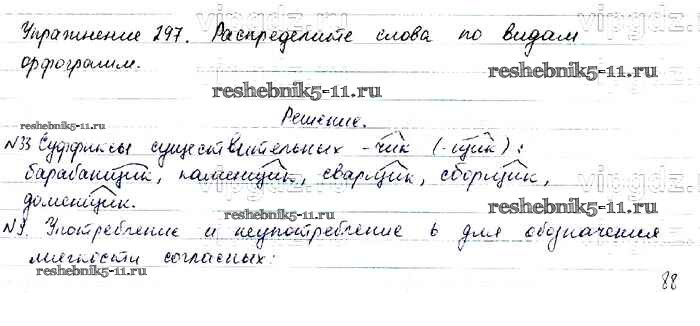 Упражнение 297. Распределите слова по видам
орфограмм.
reshebnik5-11.ru
reshebnik5-11.ru
Решение.
N33 Суффиксы существительных -чик (-щик):
барабанщик, каменщик, сварщик, сборщик,
доменщик.
reshebnik5-11.ru
reshebnik5-11.ru
N9. Употребление и неупотребление ь для обозначения
мягкости согласных:
reshebnik5-11.ru
vipgdz.ru
vipgdz.ru
88